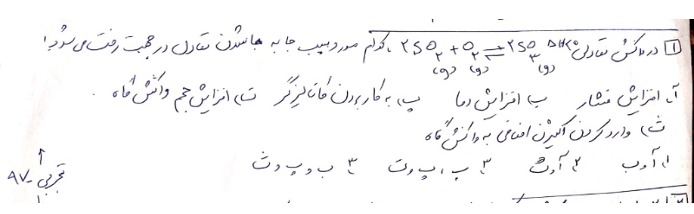 ۱ در واکنش تعادلی 2SO₂ + O₂ ⇌ 2SO₃ ΔH<0 ، کدام مورد سبب جا به جا شدن تعادل در جهت رفت می شود؟
(g) (g) (g)
آ. افزایش فشار ب) افزایش دما پ) به کار بردن کاتالیزگر ت) افزایش حجم واکنش گاه
ث) وارد کردن اکسیژن اضافی به واکنش گاه
۱) آ و ب ۲) آ و ث ۳) ب ، پ و ت ۴) ب و پ و ث
تجربی ۹۷